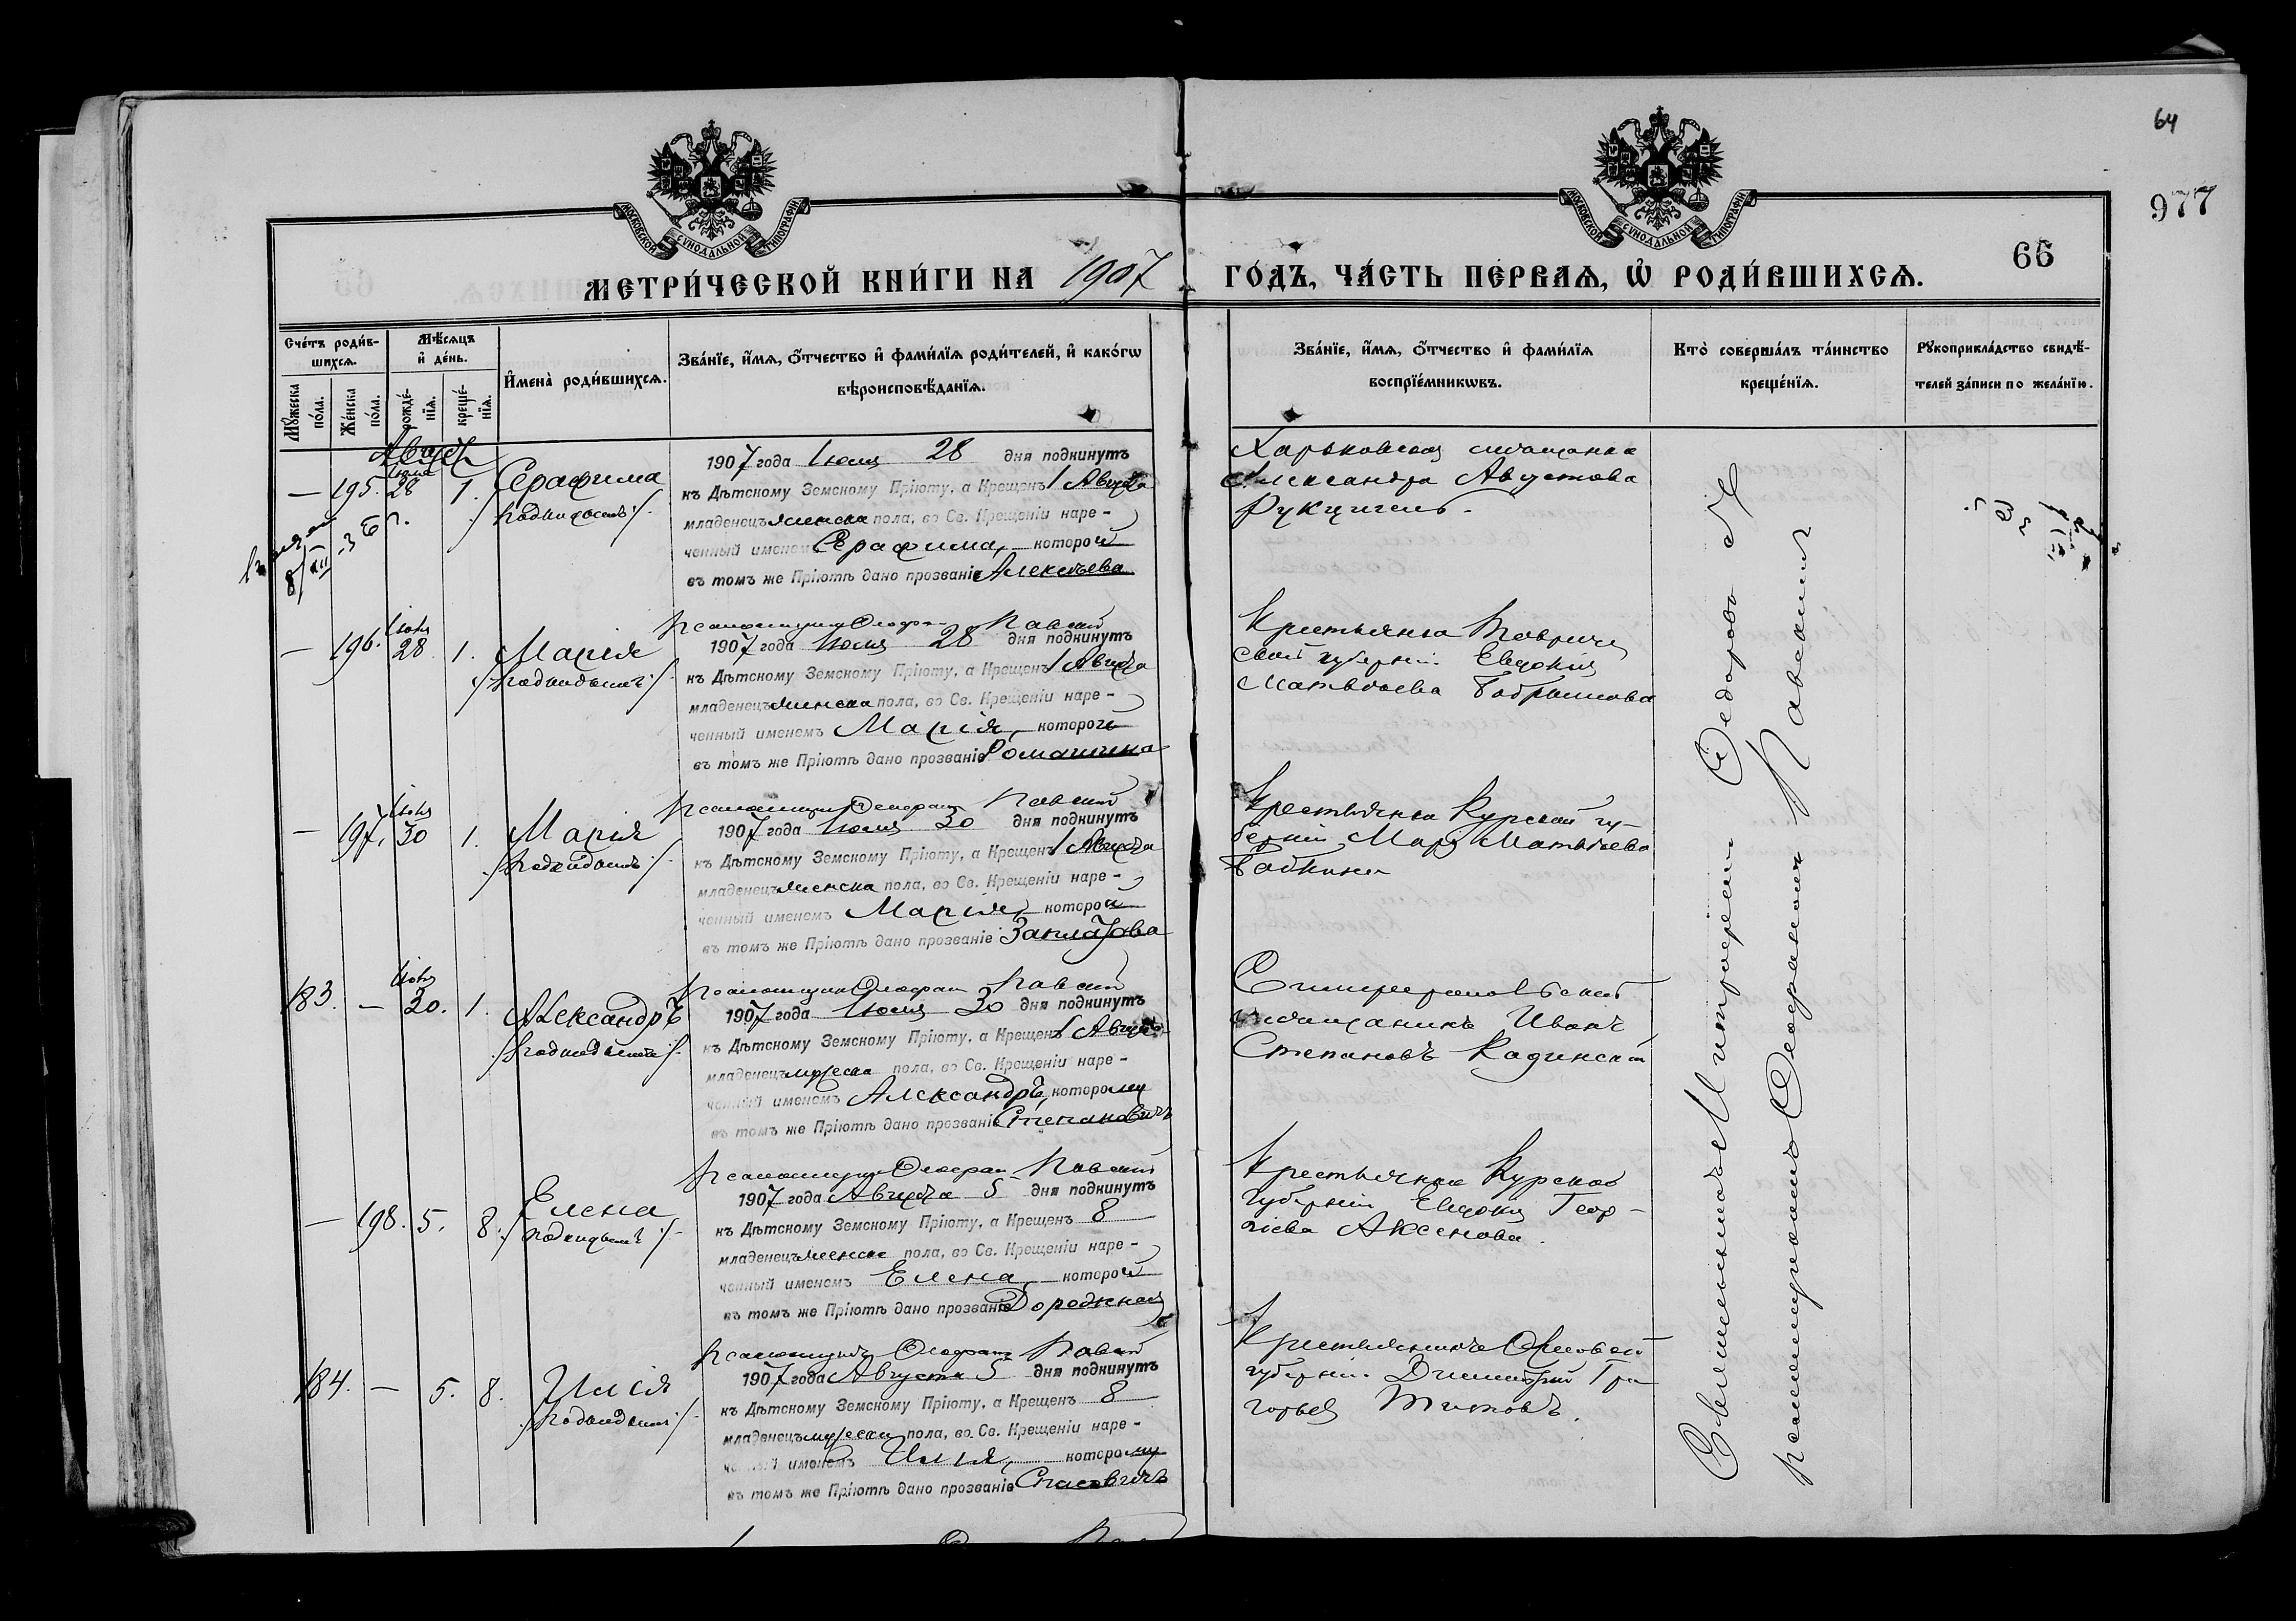 64
977
66
МОСКОВСКОЙ СѴНОДАЛЬНОЙ ТИПОГРАФІИ
МОСКОВСКОЙ СѴНОДАЛЬНОЙ ТИПОГРАФІИ
МЕТРИ́ЧЕСКОЙ КНИ́ГИ НА 1907 ГО́ДЪ, ЧА́СТЬ ПЕ́РВАѦ, Ѽ РОДИ́ВШИХСѦ.
Сче́тъ роди́в-
шихсѧ.
Мꙋ́жеска по́ла.
Же́нска по́ла.
Мѣ́сѧцъ
и҆ де́нь.
рожде́-
нїѧ.
креще́-
нїѧ.
И҆мена̀ роди́вшихсѧ.
Зва́нїе, и҆́мѧ, ѻ҆́тчество и҆ фами́лїѧ роди́телей, и҆ како́гѡ
вѣроисповѣ́данїѧ.
Зва́нїе, и҆́мѧ, ѻ҆́тчество и҆ фами́лїѧ
воспрїе́мникѡвъ.
Кто̀ соверша́лъ та́инство
креще́нїѧ.
Рꙋкоприкла́дство свидѣ́-
телей за́писи по жела́нїю.
Августъ
— 195. Іюля 28 1. Серафима
/подкидышъ/.
1907 года Іюля 28 дня подкинутъ
къ Дѣтскому Земскому Пріюту, а Крещенъ 1 Августа
младенецъ женска пола, во Св. Крещеніи наре-
ченный именемъ Серафима, которой
въ томъ же Пріютѣ дано прозваніе Алексѣева
Харьковская мѣщанка
Александра Августова
— 196. Іюля 28 1. Марія
/подкидышъ/.
Псаломщикъ Павскій
1907 года Іюля 28 дня подкинутъ
къ Дѣтскому Земскому Пріюту, а Крещенъ 1 Августа
младенецъ женска пола, во Св. Крещеніи наре-
ченный именемъ Марія, которой
въ томъ же Пріютѣ дано прозваніе
Крестьянка Тавриче
ской губерніи Евдокія
Матвѣева
— 197. Іюля 30 1. Марія
/подкидышъ/.
Псаломщикъ Павскій
1907 года Іюля 30 дня подкинутъ
къ Дѣтскому Земскому Пріюту, а Крещенъ 1 Августа
младенецъ женска пола, во Св. Крещеніи наре-
ченный именемъ Марія, которой
въ томъ же Пріютѣ дано прозваніе Заплатова
Крестьянка Курской гу-
берніи Марія Матвѣева
Бабкина
183. — Іюля 30. 1. Александръ
/подкидышъ/.
Псаломщикъ Павскій
1907 года Іюля 30 дня подкинутъ
къ Дѣтскому Земскому Пріюту, а Крещенъ 1 Августа
младенецъ мужеска пола, во Св. Крещеніи наре-
ченный именемъ Александръ, которому
въ томъ же Пріютѣ дано прозваніе Степановичъ
Симферопольскій
мѣщанинъ Иванъ
Степановъ Кадинскій
— 198. 5. 8. Елена
/подкидышъ/.
Псаломщикъ Павскій
1907 года Августа 5 дня подкинутъ
къ Дѣтскому Земскому Пріюту, а Крещенъ 8
младенецъ женска пола, во Св. Крещеніи наре-
ченный именемъ Елена, которой
въ томъ же Пріютѣ дано прозваніе
Крестьянка Курской
губерніи Евдокія Геор-
гіева Аксенова.
184. — 5. 8. Илія
/подкидышъ/.
Псаломщикъ Павскій
1907 года Августа 5 дня подкинутъ
къ Дѣтскому Земскому Пріюту, а Крещенъ 8
младенецъ мужеска пола, во Св. Крещеніи наре-
ченный именемъ Илія, которому
въ томъ же Пріютѣ дано прозваніе Спасовичъ
Крестьянинъ
губерніи Димитрій Гри
горьевъ Титовъ.
Священникъ Митрофанъ Федоровъ
псаломщикомъ Павскимъ